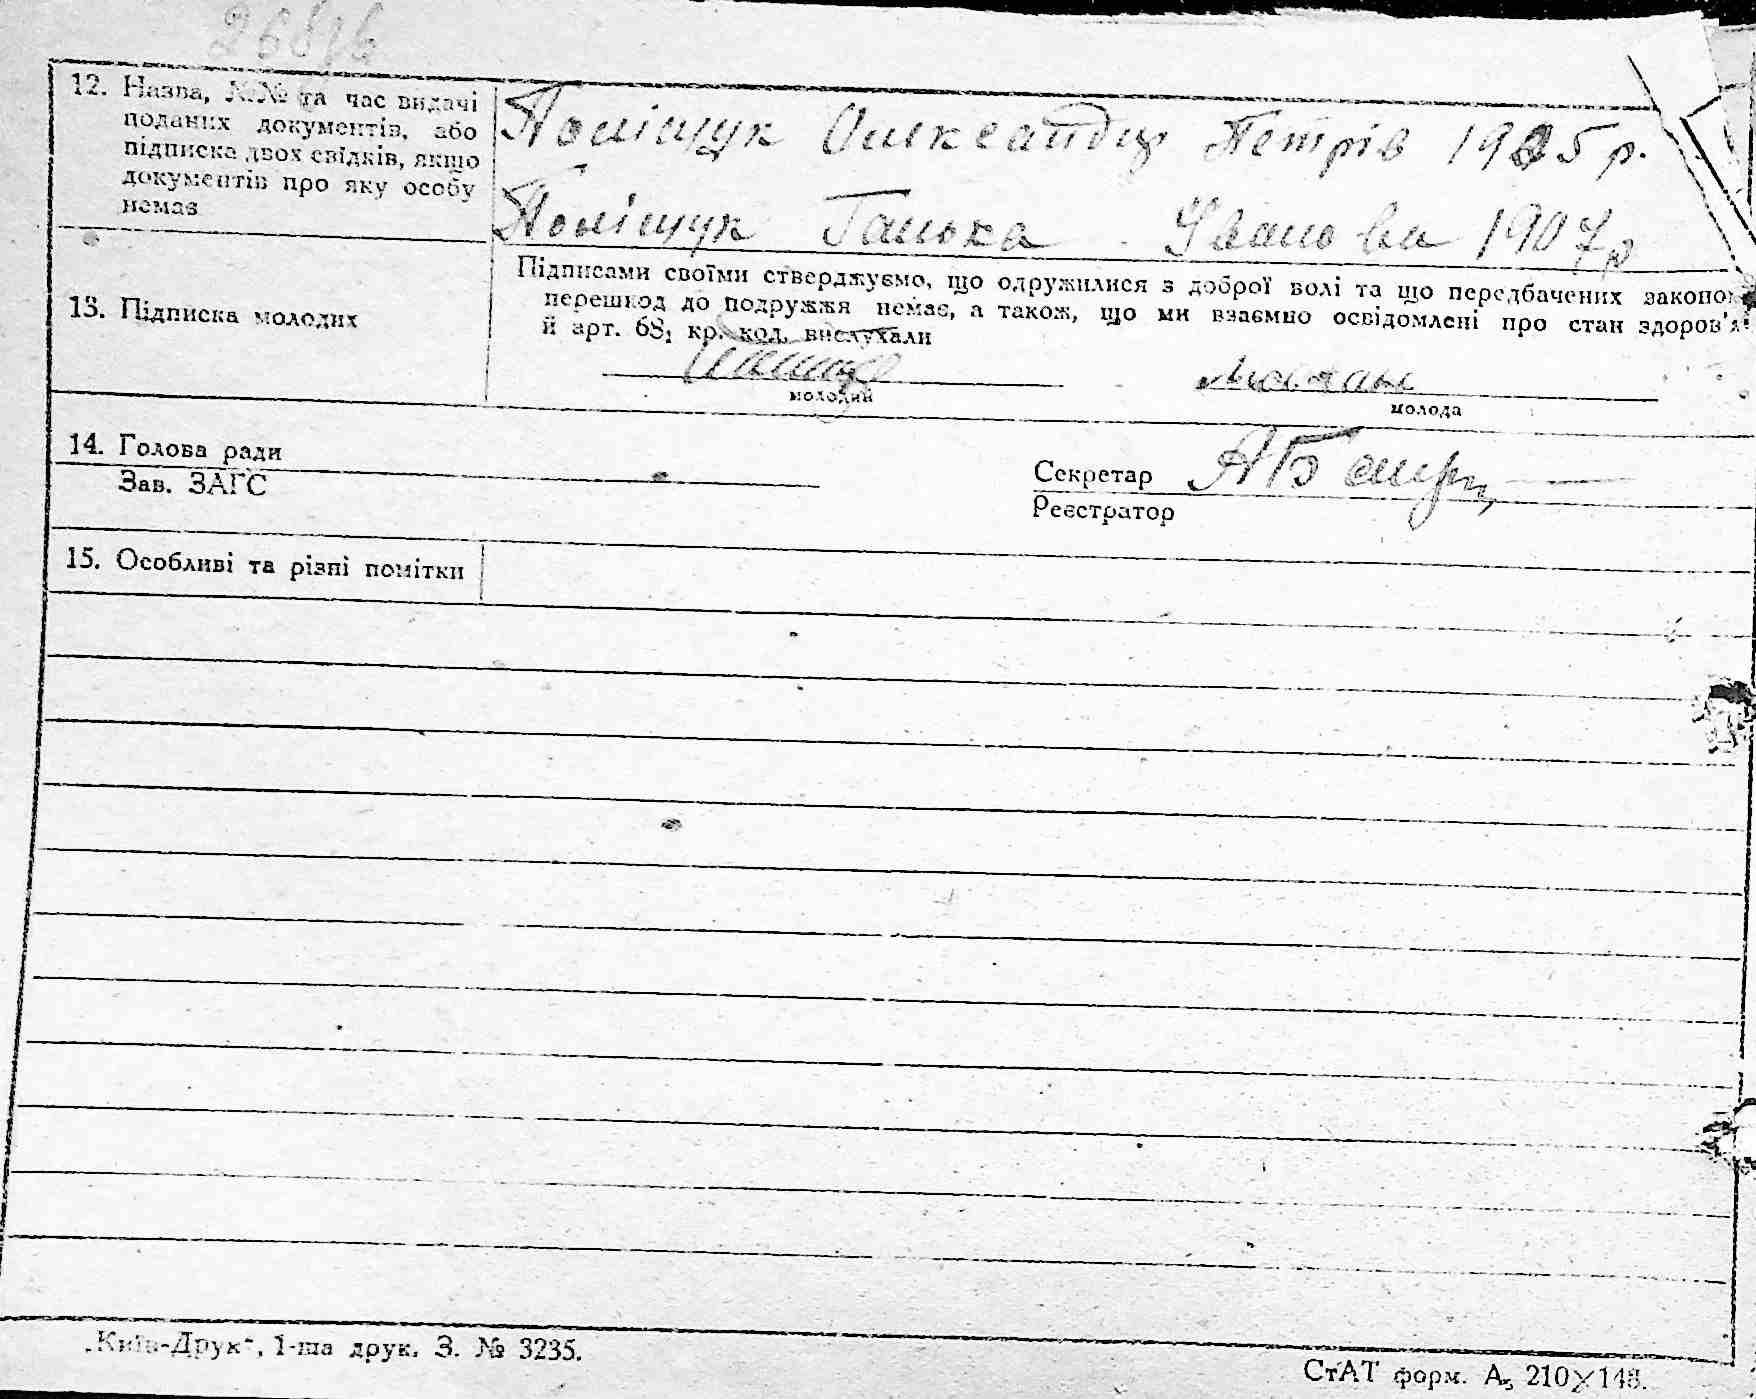 12. Назва, №№ та час видачі
поданих документів, або
підписка двох свідків, якщо
документів про яку особу
немає
Поліщук Олександр Петрів 1905 р.
Поліщук Ганька Іванови 1907 р
13. Підписка молодих
Підписами своїми стверджуємо, що одружилися з доброї волі та що передбачених законом
перешкод до подружжя немає, а також, що ми взаємно освідомлені про стан здоров'я
й арт. 68, кр. код. вислухали
молодий
молода
14. Голова ради
Зав. ЗАГС
Секретар
Реєстратор
15. Особливі та різні помітки
„Київ-Друк“, 1-ша друк. З. № 3235.
СтАТ форм. А₅ 210×148.